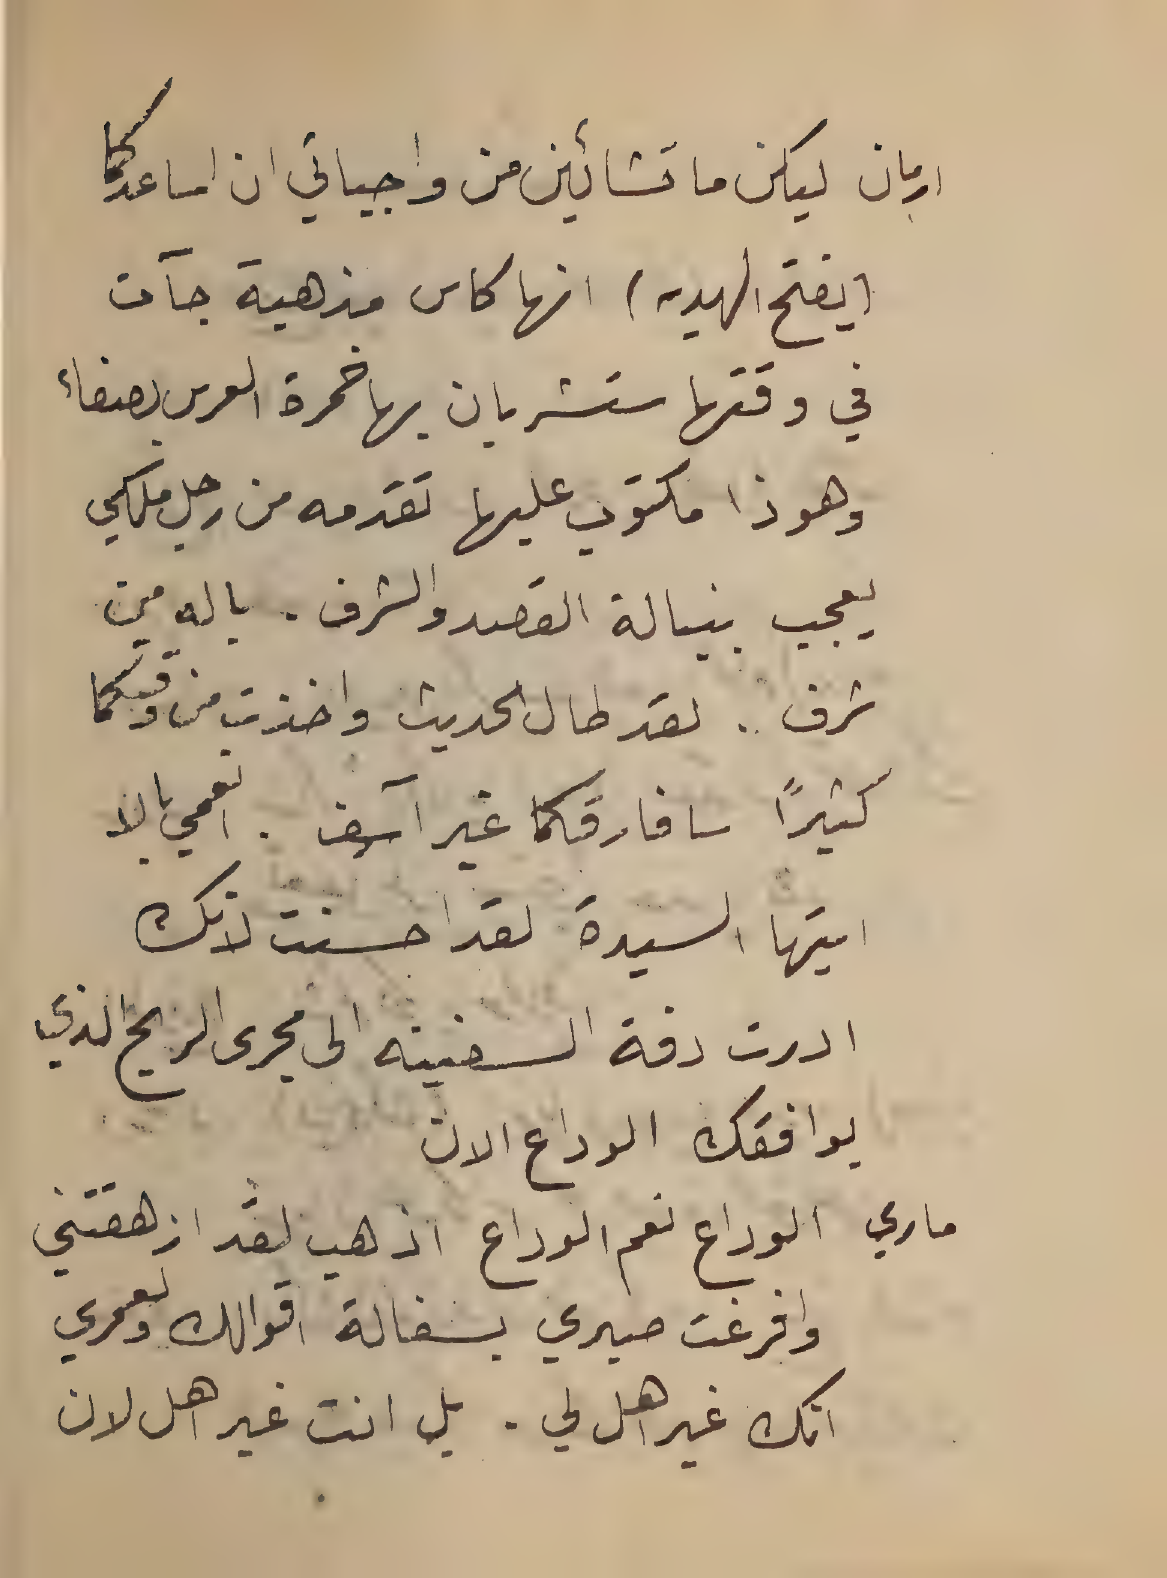 ارمان ليكن ما تشائين من واجباتي ان اساعدكما
(يفتح الهديه) انها كاس مذهبة جآت
في وقتها ستشربان بها خمرة العرس بصفاء
وهوذا مكتوب عليها تقدمه من رجل ملكي
يعجب بنبالة القصد والشرف . ياله من
شرف . لقد طال الحديث واخذت من وقتكما
كثيرًا سافارقكما غير آسف . انعمي بالا
ايتها السيدة لقد احسنت لانك
ادرت دفة السفينه الى مجرى الريح الذي
يوافقك الوداع الان
ماري الوداع نعم الوداع اذهب لقد ازهقتني
وافرغت صبري بسفالة اقوالك ولعمري
انك غير اهل لي . بل انت غير اهل لان